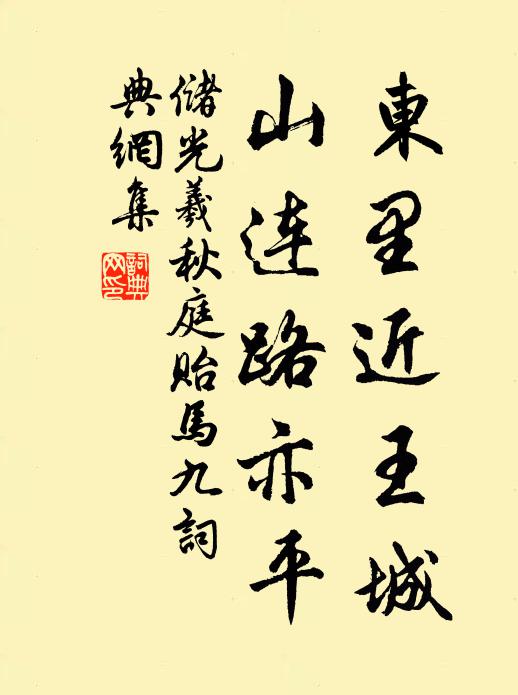 東里近王城
山連路亦平
儲光羲秋庭貽馬九詞
典網集
詞典
网印